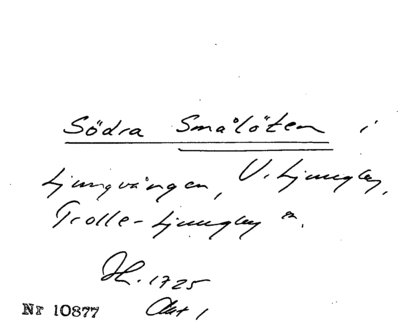 Södra Smålöten i
Ljungvången, V. Ljungby,
Trolle-Ljungby
1725
Nr 10877